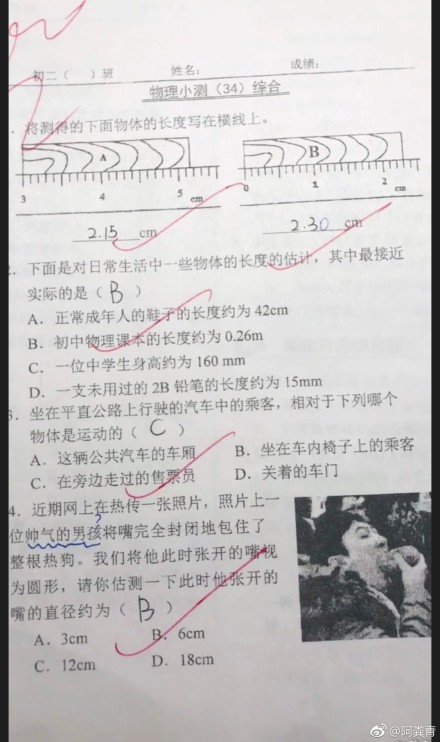 初二（ ）班 姓名： 成绩：
物理小测（34）综合
. 将测得的下面物体的长度写在横线上。
A B
3 4 5 cm 0 1 2 cm
2.15 cm 2.30 cm
2. 下面是对日常生活中一些物体的长度的估计，其中最接近
实际的是（ B ）
A．正常成年人的鞋子的长度约为 42cm
B．初中物理课本的长度约为 0.26m
C．一位中学生身高约为 160 mm
D．一支未用过的 2B 铅笔的长度约为 15mm
3. 坐在平直公路上行驶的汽车中的乘客，相对于下列哪个
物体是运动的（ C ）
A．这辆公共汽车的车厢 B．坐在车内椅子上的乘客
C．在旁边走过的售票员 D．关着的车门
4. 近期网上在热传一张照片，照片上一
位帅气的男孩将嘴完全封闭地包住了
?
整根热狗。我们将他此时张开的嘴视
为圆形，请你估测一下此时他张开的
嘴的直径约为（ B ）
A．3cm B．6cm
C．12cm D．18cm
@阿粪青